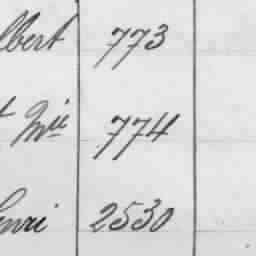 lbert 773
t Mie 774
enri 2530